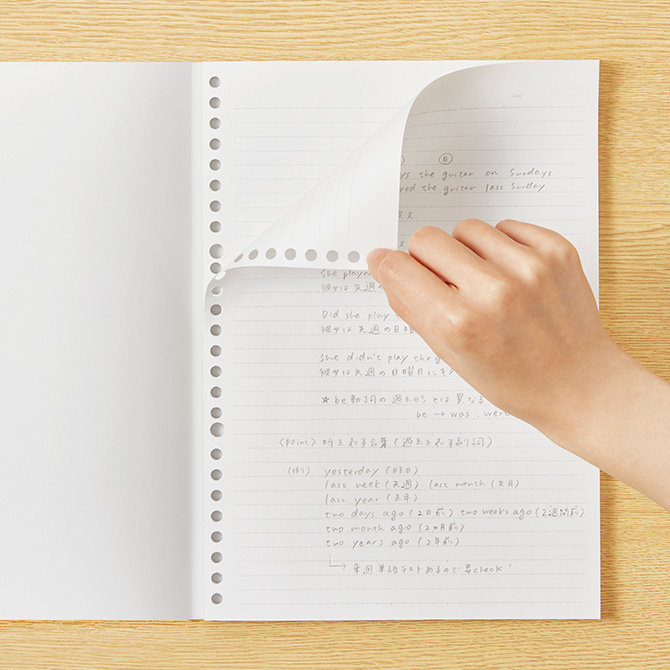 Date
ys the guitar on Sundays.
yed the guitar last Sunday
文
She playe
彼女は先週の
Did she play
彼女は先週の日曜
she didn't play the g
彼女は先週の日曜日にギ
* be動詞の過去
be → was, were
<point> 時を表す言葉(過去を表す副詞)
(例) yesterday (昨日)
last week (先週) last month (先月)
last year (去年)
two days ago (2日前) two weeks ago (2週間前)
two month ago (2ヵ月前)
two years ago (2年前)
→ 来週単語テストあるので要check!